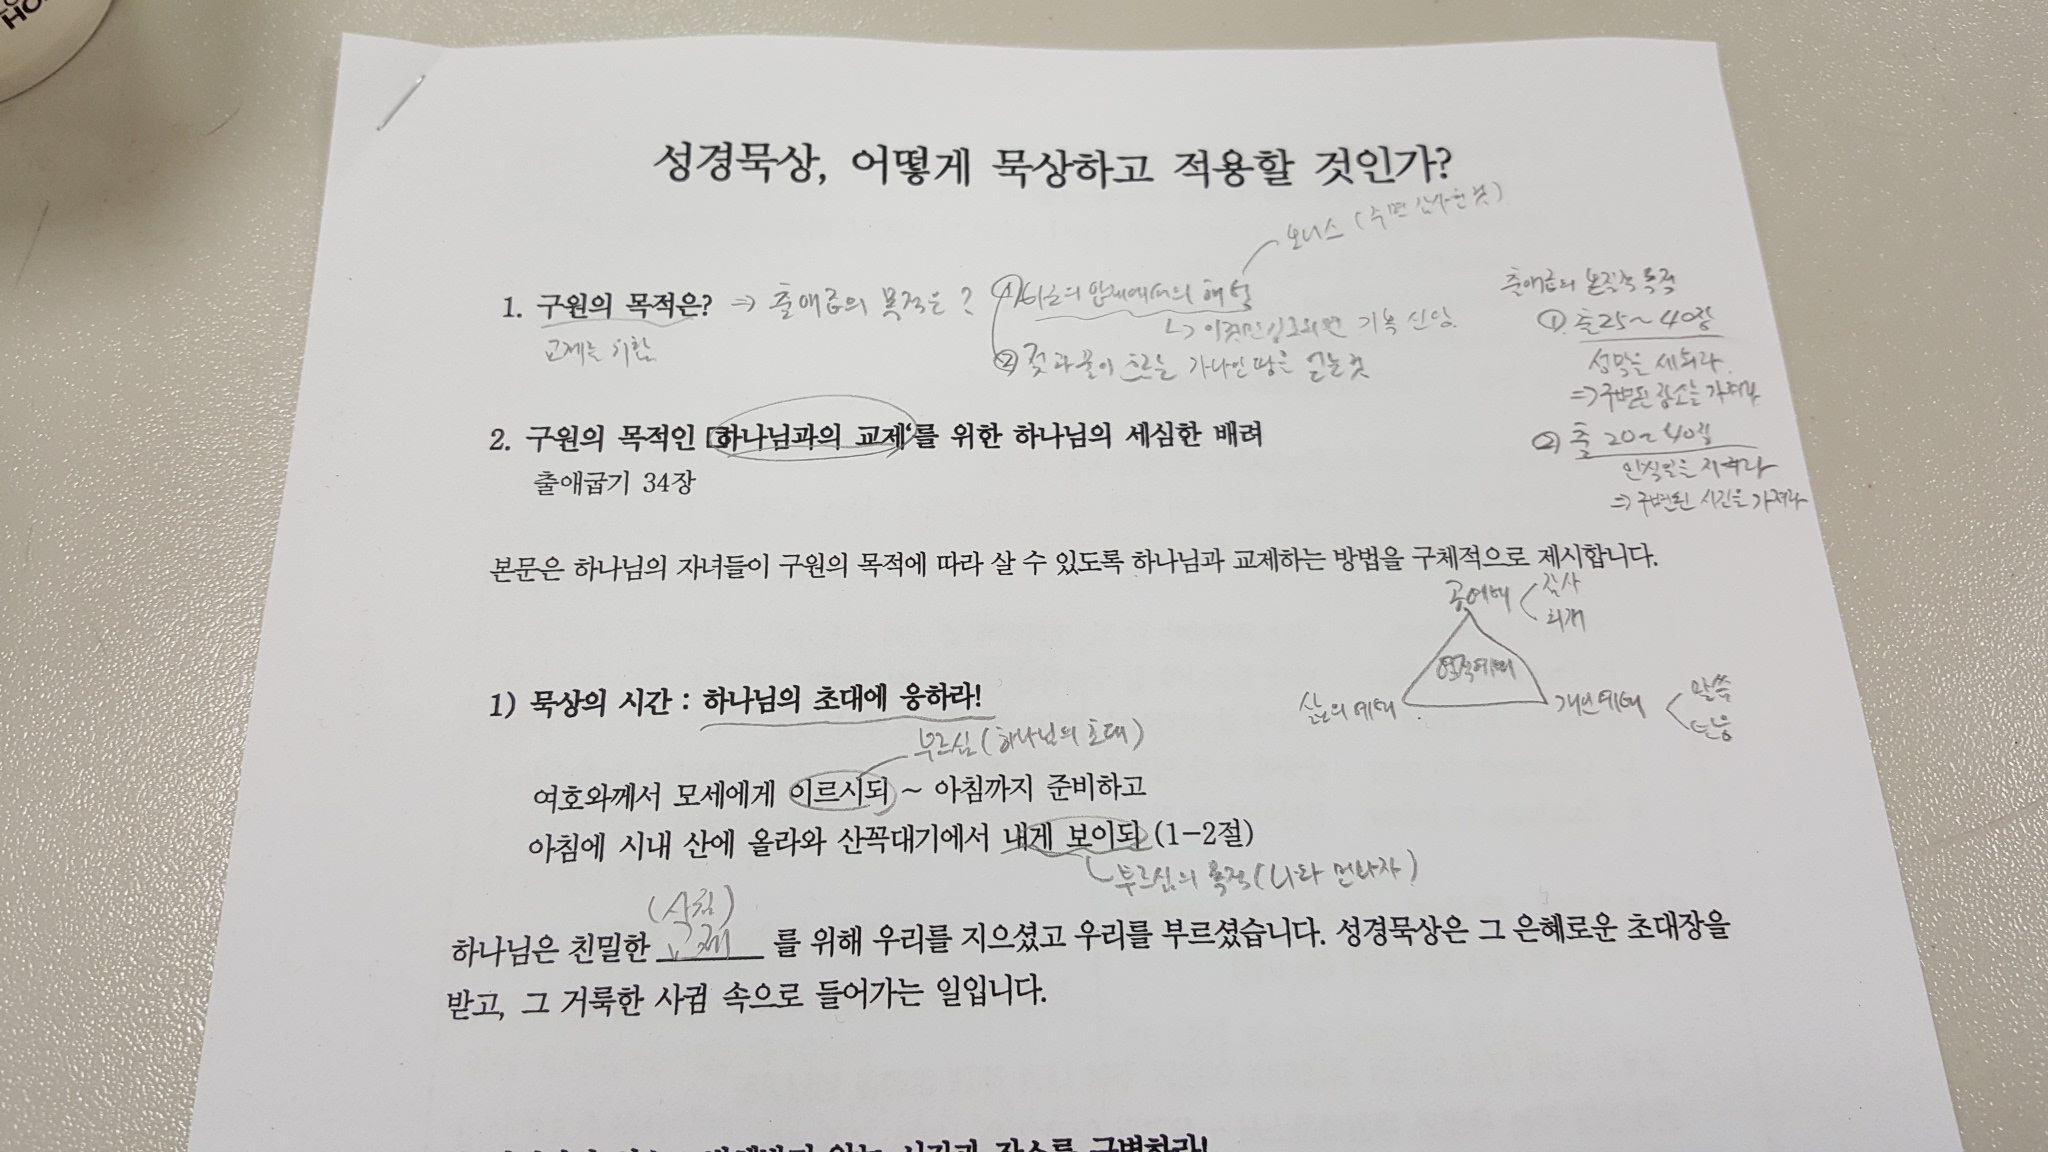 HO
성경묵상, 어떻게 묵상하고 적용할 것인가?
보너스 (주면 감사한 것)
1. 구원의 목적은? ⇒ 출애굽의 목적은? ① 바로의 압제에서의 해방
교제를 위함
↳ 기복 신앙.
② 젖과 꿀이 흐르는 가나안 땅을 얻는 것
출애굽의 본질적 목적
① 출25~40장
성막을 세워라.
⇒ 구별된 장소를 가져라
② 출 20~40장
안식일을 지켜라
⇒ 구별된 시간을 가져라
2. 구원의 목적인 [하나님과의 교제'를 위한 하나님의 세심한 배려
출애굽기 34장
본문은 하나님의 자녀들이 구원의 목적에 따라 살 수 있도록 하나님과 교제하는 방법을 구체적으로 제시합니다.
공예배 < 감사
회개
영적예배
삶의 예배
개인예배 < 말씀
1) 묵상의 시간 : 하나님의 초대에 응하라!
부르심 (하나님의 초대)
여호와께서 모세에게 이르시되 ~ 아침까지 준비하고
아침에 시내 산에 올라와 산꼭대기에서 내게 보이되 (1-2절)
부르심의 목적 (나와 만나자)
(사귐)
하나님은 친밀한 교제 를 위해 우리를 지으셨고 우리를 부르셨습니다. 성경묵상은 그 은혜로운 초대장을
받고, 그 거룩한 사귐 속으로 들어가는 일입니다.
시간과 장소를 구별하라!